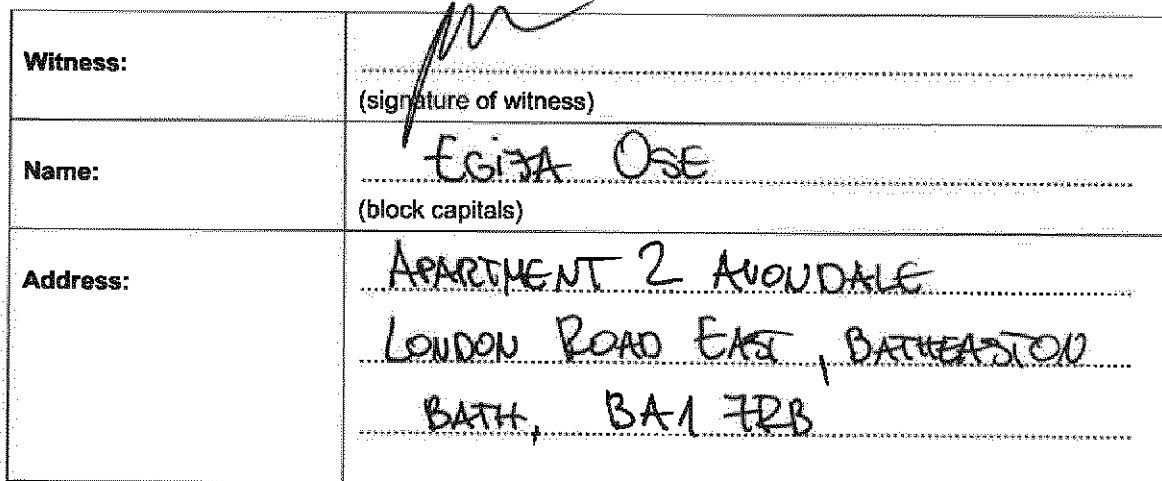 Witness:
(signature of witness)
Name: EGIJA OSE
(block capitals)
Address: APARTMENT 2 AVONDALE
LONDON ROAD EAST, BATHEASTON
BATH, BA1 7RB